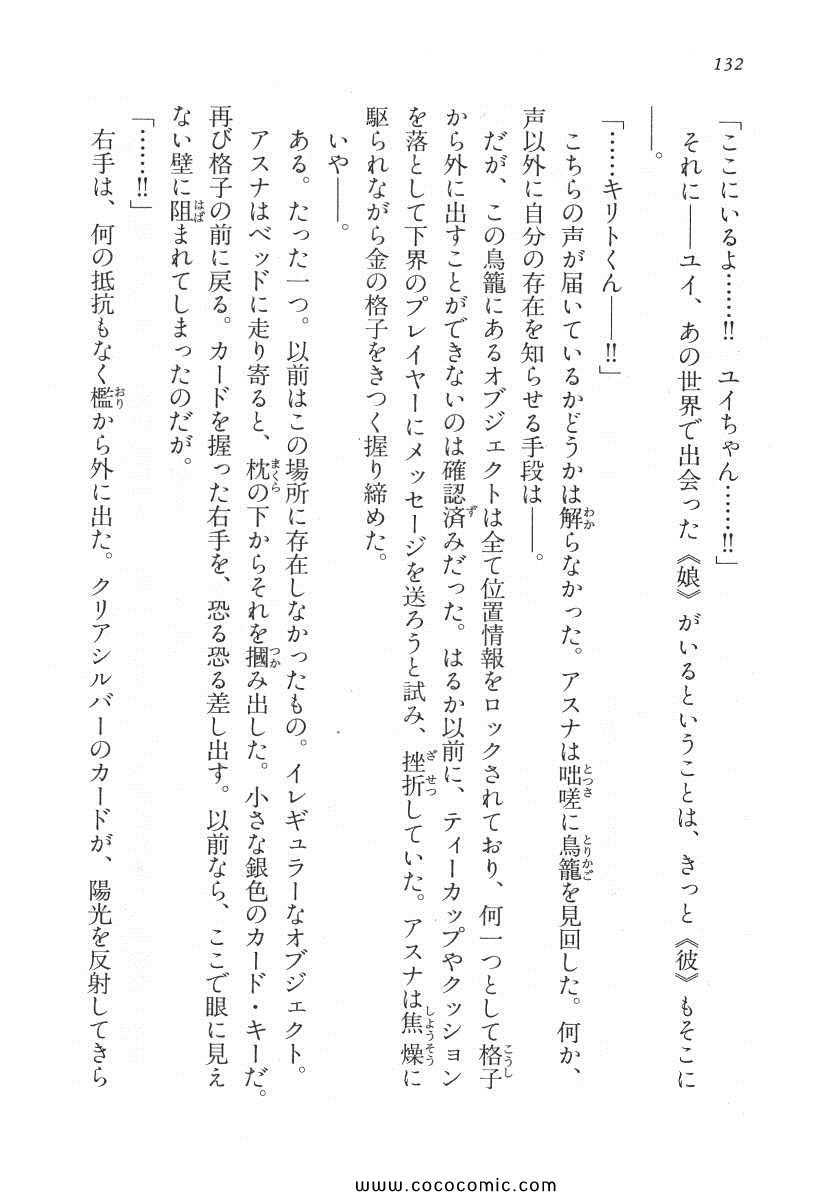 132
「ここにいるよ……!!　ユイちゃん……!!」
それに――ユイ、あの世界で出会った《娘》がいるということは、きっと《彼》もそこに
――。
「……キリトくん――!!」
こちらの声が届いているかどうかは解らなかった。アスナは咄嗟に鳥籠を見回した。何か、
声以外に自分の存在を知らせる手段は――。
だが、この鳥籠にあるオブジェクトは全て位置情報をロックされており、何一つとして格子
から外に出すことができないのは確認済みだった。はるか以前に、ティーカップやクッション
を落として下界のプレイヤーにメッセージを送ろうと試み、挫折していた。アスナは焦燥に
駆られながら金の格子をきつく握り締めた。
いや――。
ある。たった一つ。以前はこの場所に存在しなかったもの。イレギュラーなオブジェクト。
アスナはベッドに走り寄ると、枕の下からそれを摑み出した。小さな銀色のカード・キーだ。
再び格子の前に戻る。カードを握った右手を、恐る恐る差し出す。以前なら、ここで眼に見え
ない壁に阻まれてしまったのだが。
「……!!」
右手は、何の抵抗もなく檻から外に出た。クリアシルバーのカードが、陽光を反射してきら
www.cococomic.com